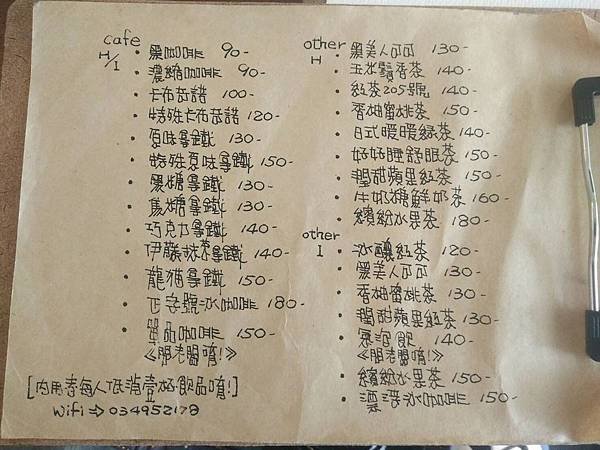 cafe
H/I
・黑咖啡 90-
・濃縮咖啡 90-
・卡布奇諾 100-
・特殊卡布奇諾 120-
・原味拿鐵 130-
・特殊原味拿鐵 150-
・黑糖拿鐵 130-
・焦糖拿鐵 130-
・巧克力拿鐵 140-
・伊藤抹茶拿鐵 140-
・龍貓拿鐵 150-
・正字號冰咖啡 180-
・單品咖啡 150-
《問老闆唷!》
[內用者每人低消壹杯飲品唷!]
Wifi⇒034952178
other
H
・黑美人可可 130-
・玉米鬚香茶 140-
・紅茶205號 140-
・香柚蜜桃茶 150-
・日式暖暖綠茶 140-
・好好睡舒眠茶 150-
・潤甜蘋果紅茶 150-
・牛奶糖鮮奶茶 160-
・繽紛水果茶 180-
other
I
・冰釀紅茶 120-
・黑美人可可 130-
・香柚蜜桃茶 130-
・潤甜蘋果紅茶 130-
・氣泡飲 140-
《問老闆唷!》
・繽紛水果茶 150-
・漂浮冰咖啡 150-